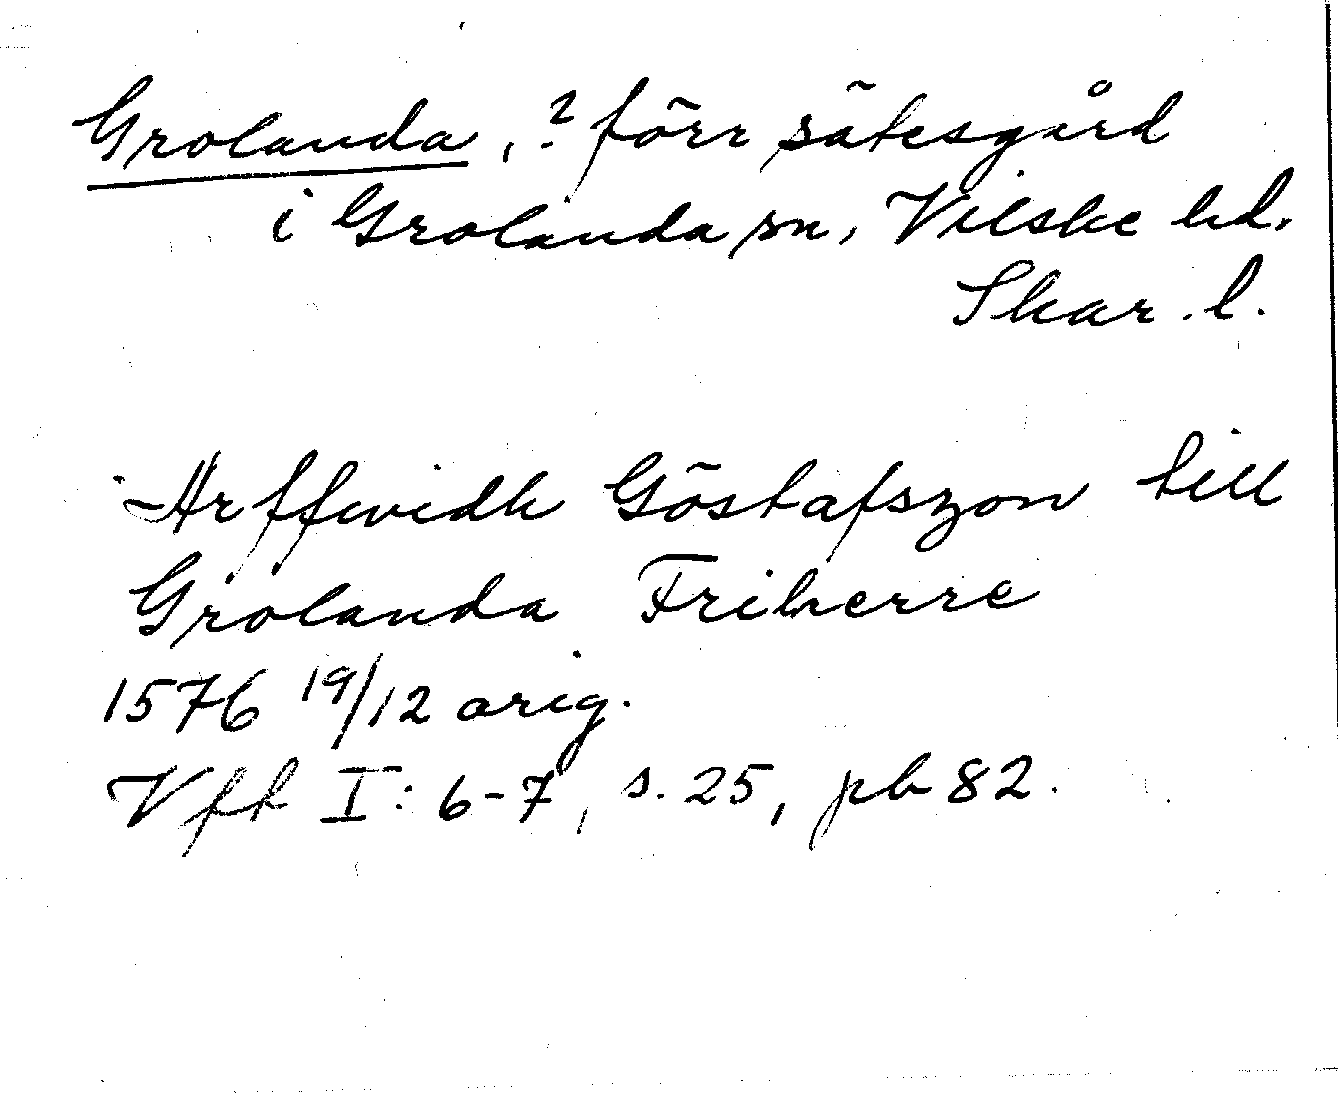 Grolanda, ? förr sätesgård
i Grolanda sn, Vilske hd.
Skar. l.
Arffwidh Göstafszon till
Grölanda Friherre
1576 19/12 orig.
Vft I: 6-7, s. 25, pb 82.